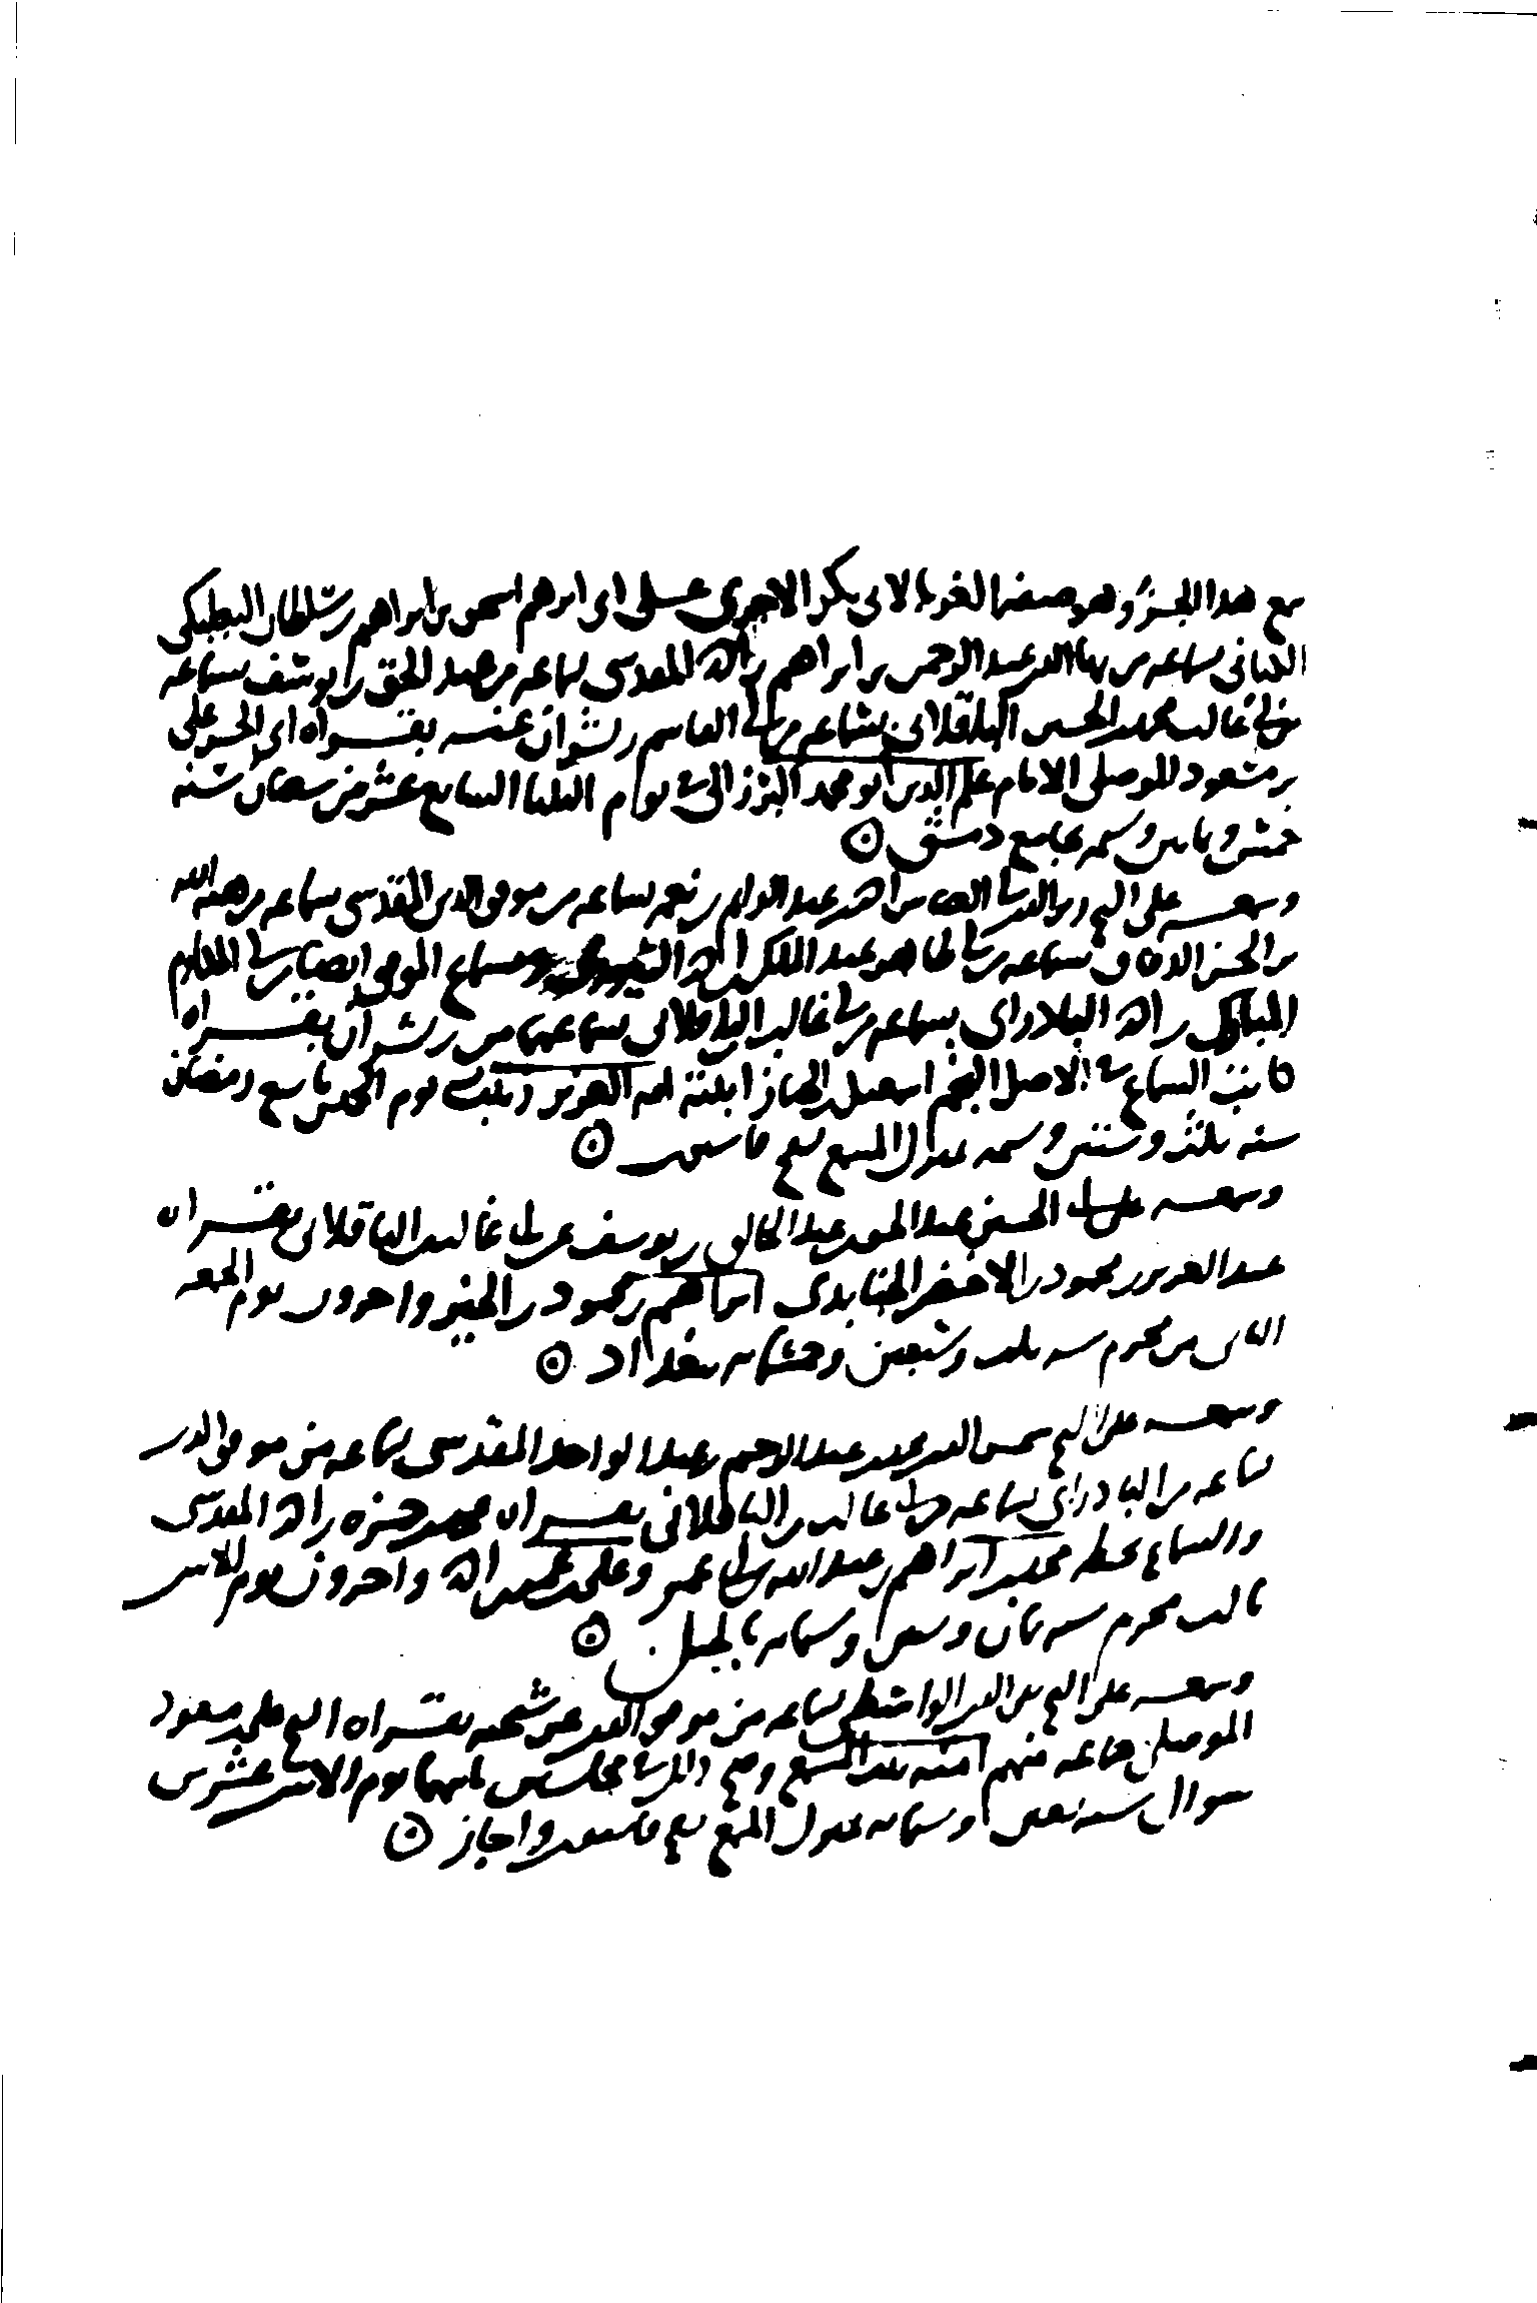 سمع هذا الجزء وهو صفة الغرباء لابي بكر الاجري على ابي ابرهيم اسحق بن ابراهيم بن سلطان البعلبكي
الكتاني بسماعه من بها الدين عبد الرحمن بن ابراهيم بن احمد المقدسي بسماعه من عبد الحق بن يوسف بسماعه
من ابي غالب محمد بن الحسن الباقلاني بسماعه من ابي القاسم بن بشران عنه بقراة ابي الحسن علي
بن مسعود الموصلي الامام علم الدين ابو محمد البرزالي في يوم الثلثا السابع عشر من شعبان سنة
خمس وثمانين وستمية بجامع دمشق
وسمعه على الشيخ زين الدين ابي العباس احمد بن عبد الدايم بن نعمة بسماعه من موفق الدين المقدسي بسماعه من هبة الله
بن الحسن الدقاق بسماعه من ابي طاهر عبد الملك بن احمد السيوري وبسماع الموفق ايضا من ابي المكارم
المبارك بن احمد البادرائي بسماعه من ابي غالب الباقلاني بسماعهما من بن بشران بقراة
كاتب السماع في الاصل النجم اسمعيل بن الخباز ابنته امة العزيز زينب يوم الخميس تاسع رمضان
سنة ثلث وستين وستمية بمنزل المسمع بسفح قاسيون
وسمعه على ابي الحسين عبد الحق بن عبد الخالق بن يوسف عن ابي غالب الباقلاني بقراة
عبد العزيز بن محمود بن الاخضر الجنابذي ابراهيم بن محمود بن الخير واخرون يوم الجمعة
الثامن من محرم سنة ثلث وسبعين وخمسماية ببغداد
وسمعه على الشيخ شمس الدين محمد بن عبد الرحيم بن عبد الواحد المقدسي بسماعه من موفق الدين
بسماعه من البادرائي بسماعه من ابي غالب بن الباقلاني بقراة محمد بن حمزة بن احمد المقدسي
والسماع بخطه محمد بن ابراهيم بن عبد الله بن ابي عمر وعلي بن محمد بن احمد واخرون يوم الاثنين
ثالث محرم سنة ثمان وسبعين وستماية بالجبل
وسمعه على الشيخ تقي الدين الواسطي بسماعه من موفق الدين عن شيخه بقراة الشيخ علي بن مسعود
الموصلي جماعة منهم امنة بنت المسمع وصح ذلك في مجلسين ثانيهما يوم الاثنين عشرين
شوال سنة تسعين وستماية بمنزل المسمع بسفح قاسيون واجاز